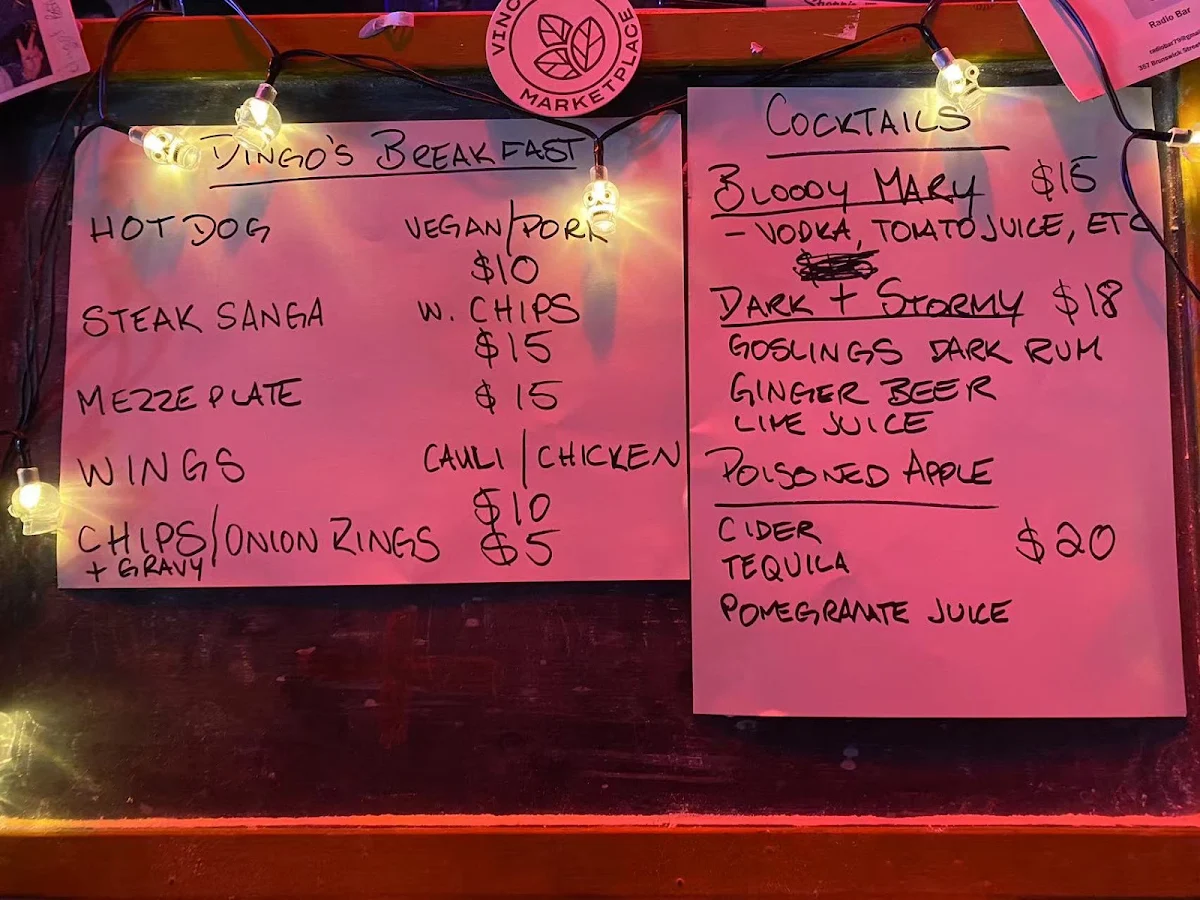 MARKETPLACE
Radio Bar
DINGO'S BREAKFAST
HOT DOG VEGAN/PORK
$10
STEAK SANGA W. CHIPS
$15
MEZZE PLATE $15
WINGS CAULI/CHICKEN
$10
CHIPS/ONION RINGS $5
+ GRAVY
COCKTAILS
BLOODY MARY $15
- VODKA, TOMATO JUICE, ETC
DARK + STORMY $18
GOSLINGS DARK RUM
GINGER BEER
LIME JUICE
POISONED APPLE
CIDER $20
TEQUILA
POMEGRANATE JUICE